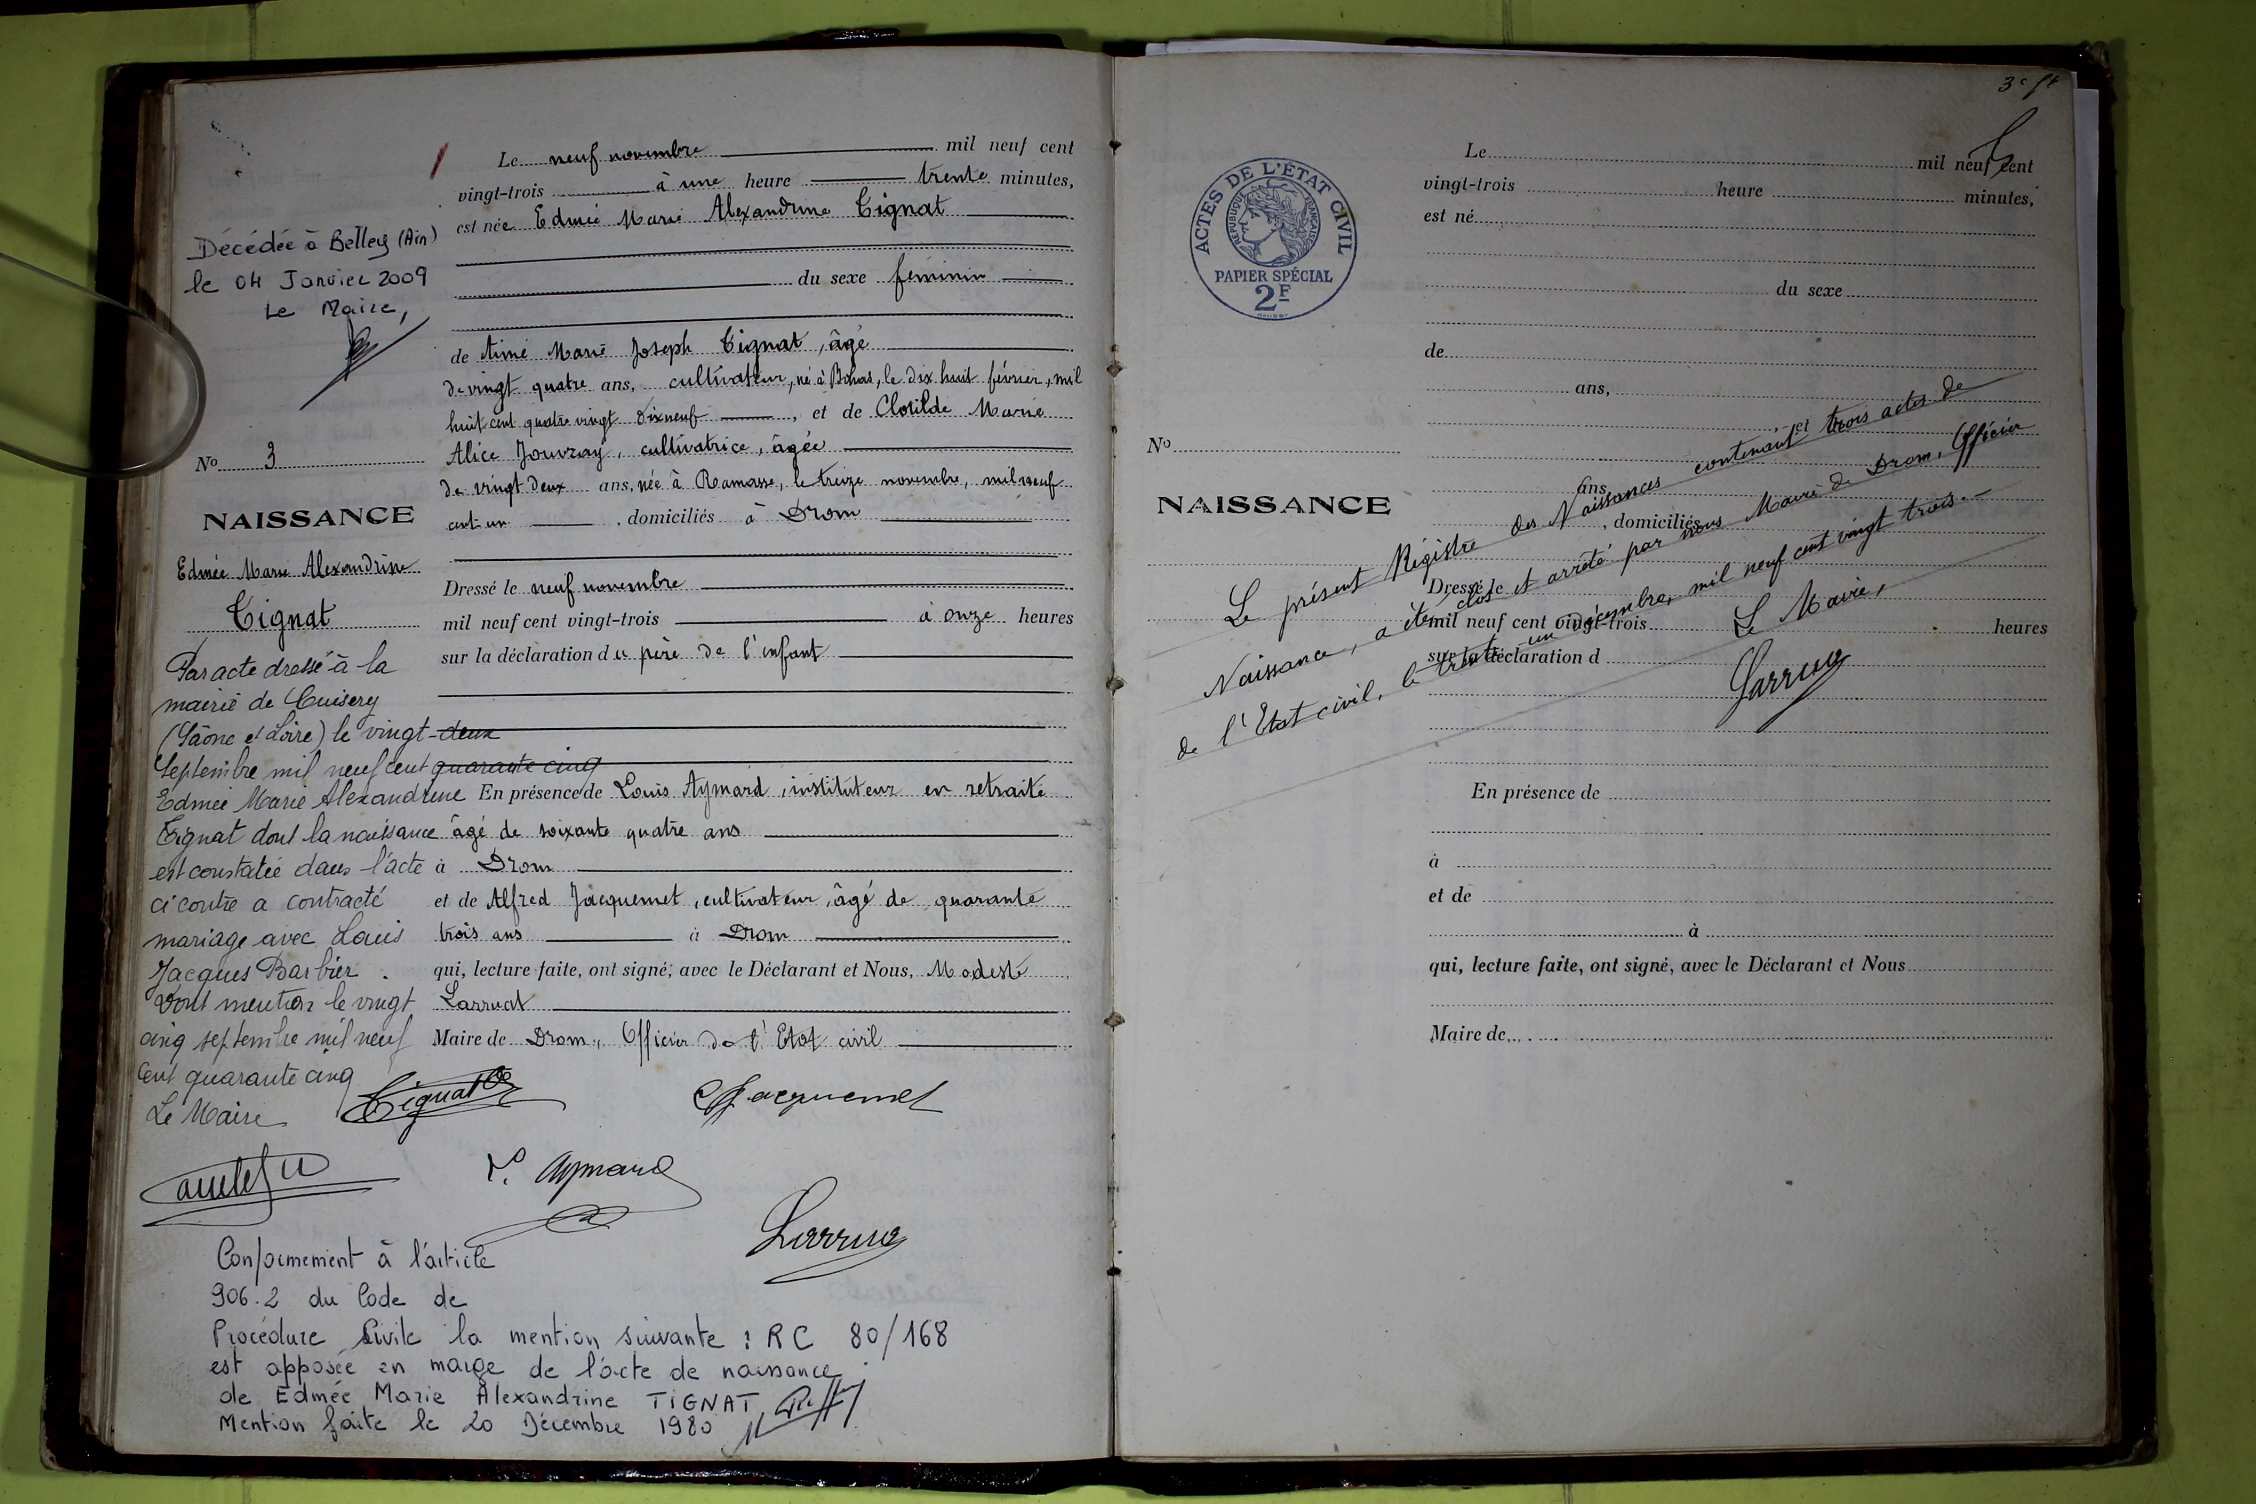 Le neuf novembre mil neuf cent
vingt-trois à une heure trente minutes,
est née Edmée Marie Alexandrine Tignat
du sexe féminin
de Aimé Marie Joseph Tignat, âgé
de vingt quatre ans, cultivateur, né à Bohas, le dix huit février, mil
huit cent quatre vingt dix neuf, et de Clotilde Marie
Alice Jouvray, cultivatrice, âgée
de vingt deux ans, née à Ramasse, le treize novembre, mil neuf
cent un, domiciliés à Drom
Dressé le neuf novembre
mil neuf cent vingt-trois à onze heures
sur la déclaration du père de l'enfant
En présence de Louis Aymard, instituteur en retraite
âgé de soixante quatre ans
à Drom
et de Alfred Jacquemet, cultivateur, âgé de quarante
trois ans à Drom
qui, lecture faite, ont signé, avec le Déclarant et Nous, Modeste
Larruat
Maire de Drom, Officier de l'Etat civil
Tignat
Jacquemet
Aymard
Décédée à Belley (Ain)
le 04 Janvier 2009
Le Maire,
No 3
NAISSANCE
Edmée Marie Alexandrine
Tignat
Par acte dressé à la
mairie de Cuisery
(Saône et Loire) le vingt-deux
Septembre mil neuf cent quarante cinq
Edmée Marie Alexandrine
Tignat dont la naissance
est constatée dans l'acte
ci contre a contracté
mariage avec Louis
Jacques Barbier.
Dont mention le vingt
cinq septembre mil neuf
cent quarante cinq
Le Maire
Conformement à l'article
906.2 du Code de
Procédure Civile la mention suivante : RC 80/168
est apposée en marge de l'acte de naissance
de Edmée Marie Alexandrine TIGNAT
Mention faite le 20 Décembre 1980
ACTES DE L'ÉTAT CIVIL
RÉPUBLIQUE FRANÇAISE
PAPIER SPÉCIAL
2F
No
NAISSANCE
Le mil neuf cent
vingt-trois heure minutes,
est né
du sexe
de
ans,
ans
, domiciliés
Dressé le
mil neuf cent vingt-trois heures
sur la déclaration d
En présence de
à
et de
à
qui, lecture faite, ont signé, avec le Déclarant et Nous
Maire de
Le présent Régistre des Naissances contenant et trois actes de
Naissance, a été clos et arrêté par nous Maire de Drom, Officier
de l'Etat civil, le trente un décembre, mil neuf cent vingt trois.
Le Maire,